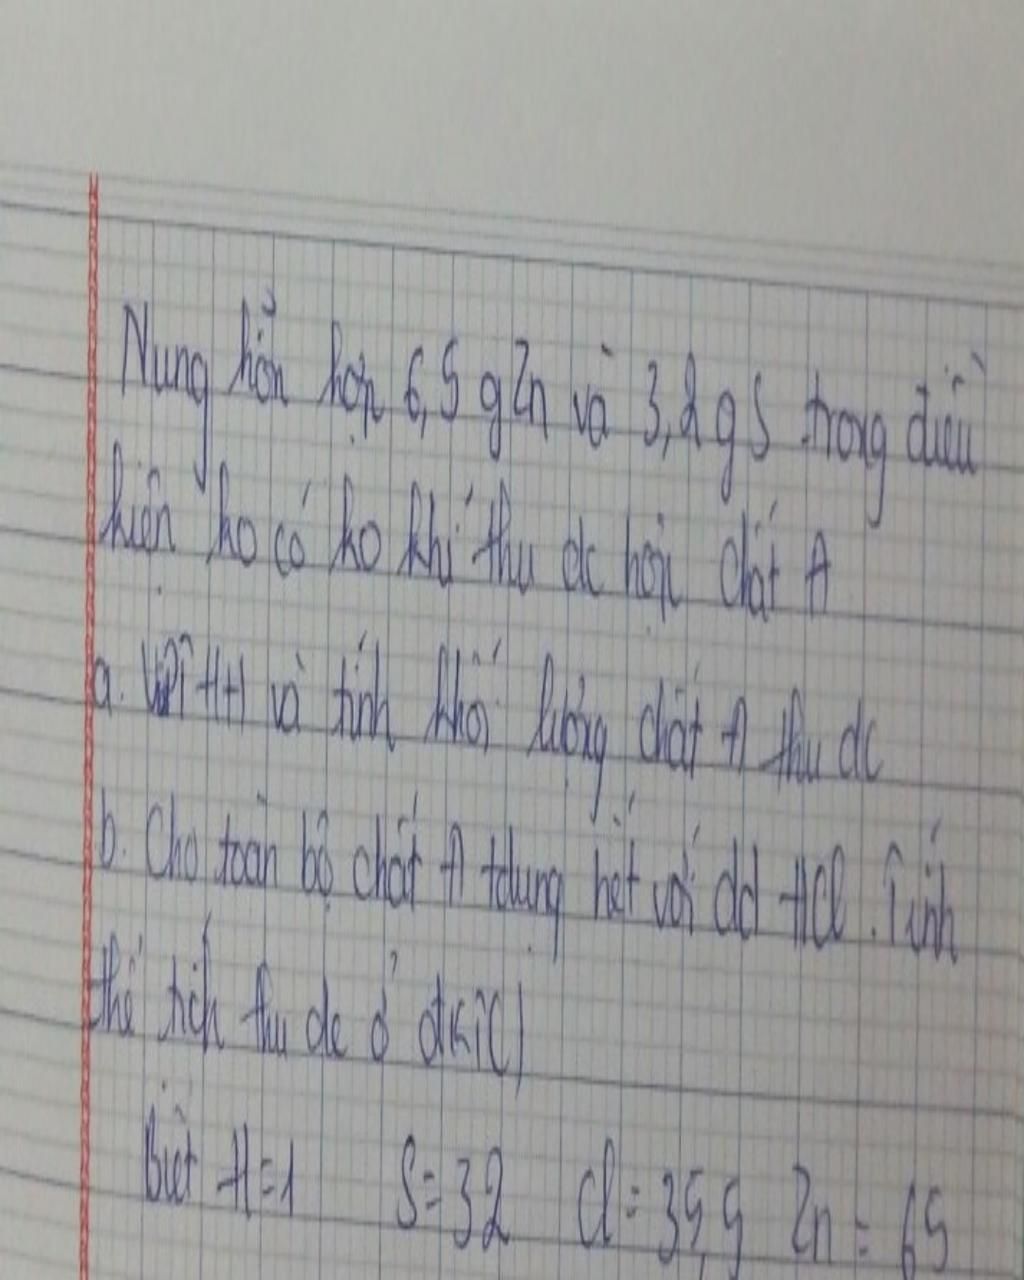 Nung hỗn hợp 6,5 g Zn và 3,2 g S trong điều
kiện ko có ko khí thu dc hợp chất A
a. Viết t+1 và tính khối lượng chất A thu dc
b. Cho toàn bộ chất A tdụng hết với dd HCl. Tính
thể tích thu dc ở đktc)
Biết H=1 S=32 Cl=35,5 Zn=65